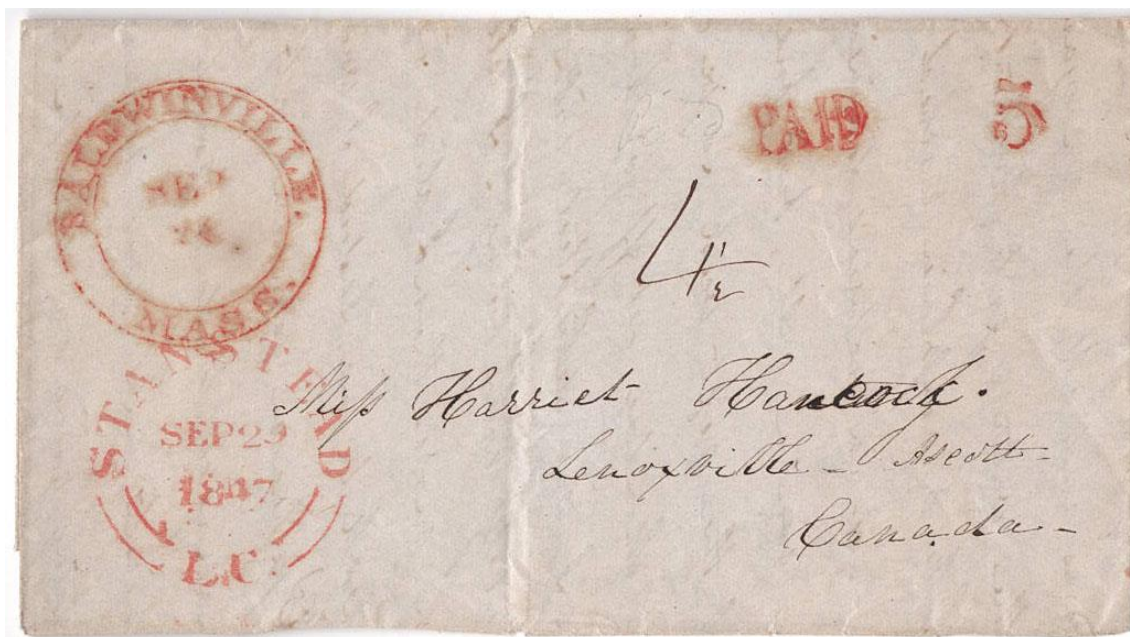 BALDWINVILLE.
MASS.
SEP
PAID
5
paid
4 1/2
STANSTEAD
SEP 29
1847
L.C.
Miss Harriet Hancock.
Lenoxville - Ascott -
Canada -